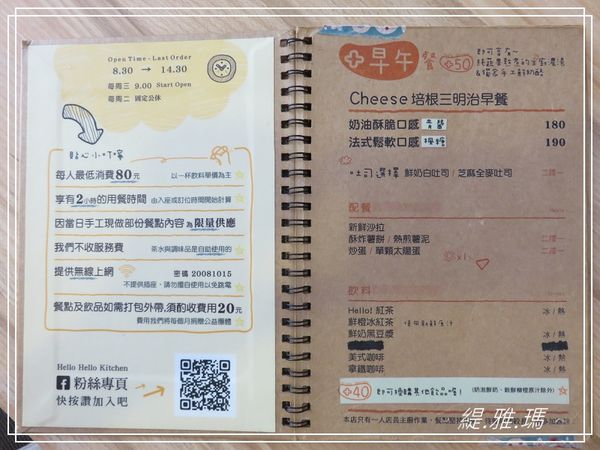 Open Time - Last Order
8.30 → 14.30
每周三 9.00 Start Open
每周二 固定公休
貼心小叮嚀
每人最低消費80元 以一杯飲料單價為主
享有2小時的用餐時間 由入座或訂位時間開始計算
因當日手工現做部份餐點內容為限量供應
我們不收服務費 茶水與調味品是自助使用的
提供無線上網 密碼 20081015
不提供插座，請勿擅自使用以免跳電
餐點及飲品如需打包外帶,須酌收費用20元
費用我們將每個月捐贈公益團體
Hello Hello Kitchen
粉絲專頁
快按讚加入吧
早午餐 +50
即可享有~
&獨家手工鮮奶酪
Cheese 培根三明治早餐
奶油酥脆口感 青醬 180
法式鬆軟口感 楓糖 190
吐司選擇 鮮奶白吐司 / 芝麻全麥吐司 二擇一
配餐
新鮮沙拉
酥炸薯餅 / 熱煎薯泥 二擇一
炒蛋 / 單顆太陽蛋 二擇一
x1
飲料
Hello! 紅茶 冰 / 熱
鮮橙冰紅茶 使用新鮮原汁
鮮奶黑豆漿 冰 / 熱
美式咖啡 冰 / 熱
拿鐵咖啡 冰 / 熱
+40 即可換購其他飲品喔! (奶泡鮮奶、新鮮柳橙原汁除外)
本店只有一人店員主廚作業，餐點
緹.雅.瑪